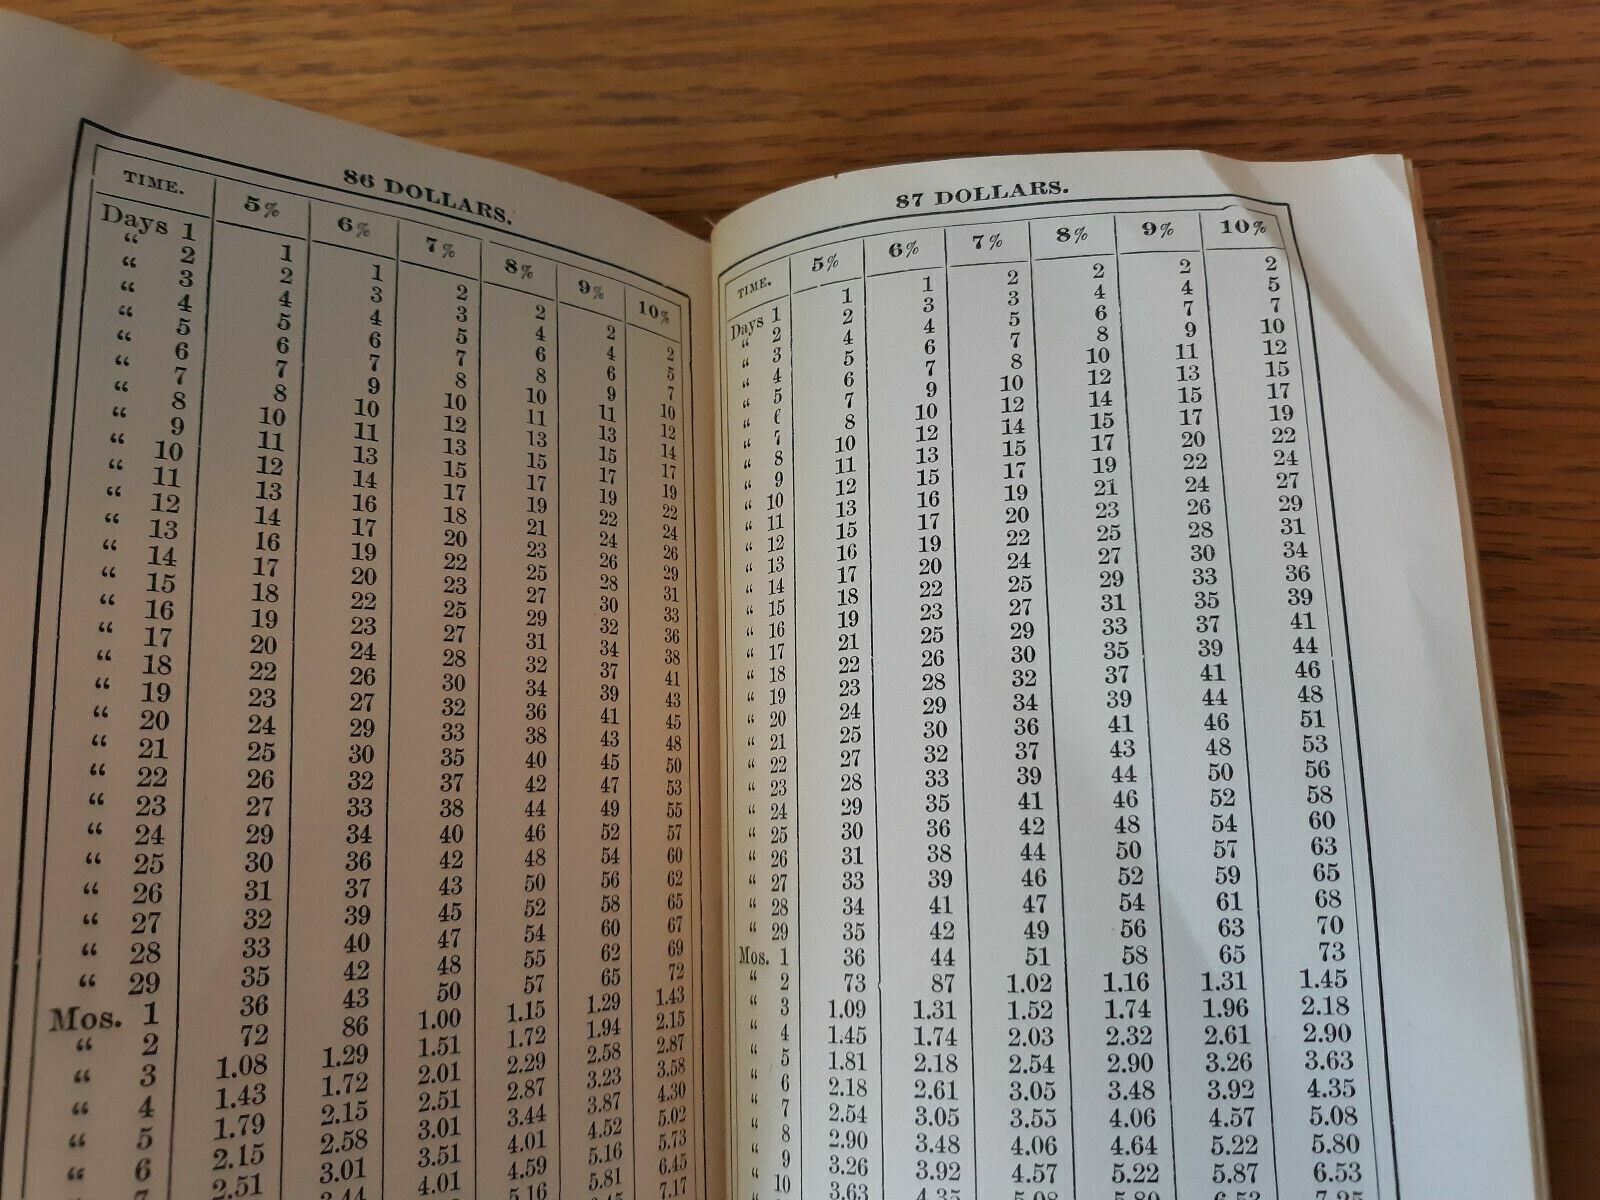 86 DOLLARS.
TIME. 5% 6% 7% 8% 9% 10%
Days 1 1 1 2 2 2 2
“ 2 2 3 3 4 4 5
“ 3 4 4 5 6 6 7
“ 4 5 6 7 8 9 10
“ 5 6 7 8 10 11 12
“ 6 7 9 10 11 13 14
“ 7 8 10 12 13 15 17
“ 8 10 11 13 15 17 19
“ 9 11 13 15 17 19 22
“ 10 12 14 17 19 22 24
“ 11 13 16 18 21 24 26
“ 12 14 17 20 23 26 29
“ 13 16 19 22 25 28 31
“ 14 17 20 23 27 30 33
“ 15 18 22 25 29 32 36
“ 16 19 23 27 31 34 38
“ 17 20 24 28 32 37 41
“ 18 22 26 30 34 39 43
“ 19 23 27 32 36 41 45
“ 20 24 29 33 38 43 48
“ 21 25 30 35 40 45 50
“ 22 26 32 37 42 47 53
“ 23 27 33 38 44 49 55
“ 24 29 34 40 46 52 57
“ 25 30 36 42 48 54 60
“ 26 31 37 43 50 56 62
“ 27 32 39 45 52 58 65
“ 28 33 40 47 54 60 67
“ 29 35 42 48 55 62 69
Mos. 1 36 43 50 57 65 72
“ 2 72 86 1.00 1.15 1.29 1.43
“ 3 1.08 1.29 1.51 1.72 1.94 2.15
“ 4 1.43 1.72 2.01 2.29 2.58 2.87
“ 5 1.79 2.15 2.51 2.87 3.23 3.58
“ 6 2.15 2.58 3.01 3.44 3.87 4.30
7 2.51 3.01 3.51 4.01 4.52 5.02
3.44 4.01 4.59 5.16 5.73
5.16 5.81 6.45
6.45 7.17
87 DOLLARS.
TIME. 5% 6% 7% 8% 9% 10%
Days 1 1 1 2 2 2 2
“ 2 2 3 3 4 4 5
“ 3 4 4 5 6 7 7
“ 4 5 6 7 8 9 10
“ 5 6 7 8 10 11 12
“ 6 7 9 10 12 13 15
“ 7 8 10 12 14 15 17
“ 8 10 12 14 15 17 19
“ 9 11 13 15 17 20 22
“ 10 12 15 17 19 22 24
“ 11 13 16 19 21 24 27
“ 12 15 17 20 23 26 29
“ 13 16 19 22 25 28 31
“ 14 17 20 24 27 30 34
“ 15 18 22 25 29 33 36
“ 16 19 23 27 31 35 39
“ 17 21 25 29 33 37 41
“ 18 22 26 30 35 39 44
“ 19 23 28 32 37 41 46
“ 20 24 29 34 39 44 48
“ 21 25 30 36 41 46 51
“ 22 27 32 37 43 48 53
“ 23 28 33 39 44 50 56
“ 24 29 35 41 46 52 58
“ 25 30 36 42 48 54 60
“ 26 31 38 44 50 57 63
“ 27 33 39 46 52 59 65
“ 28 34 41 47 54 61 68
“ 29 35 42 49 56 63 70
Mos. 1 36 44 51 58 65 73
“ 2 73 87 1.02 1.16 1.31 1.45
“ 3 1.09 1.31 1.52 1.74 1.96 2.18
“ 4 1.45 1.74 2.03 2.32 2.61 2.90
“ 5 1.81 2.18 2.54 2.90 3.26 3.63
“ 6 2.18 2.61 3.05 3.48 3.92 4.35
“ 7 2.54 3.05 3.55 4.06 4.57 5.08
“ 8 2.90 3.48 4.06 4.64 5.22 5.80
“ 9 3.26 3.92 4.57 5.22 5.87 6.53
“ 10 3.63 4.35 5.08 5.80 6.53 7.25